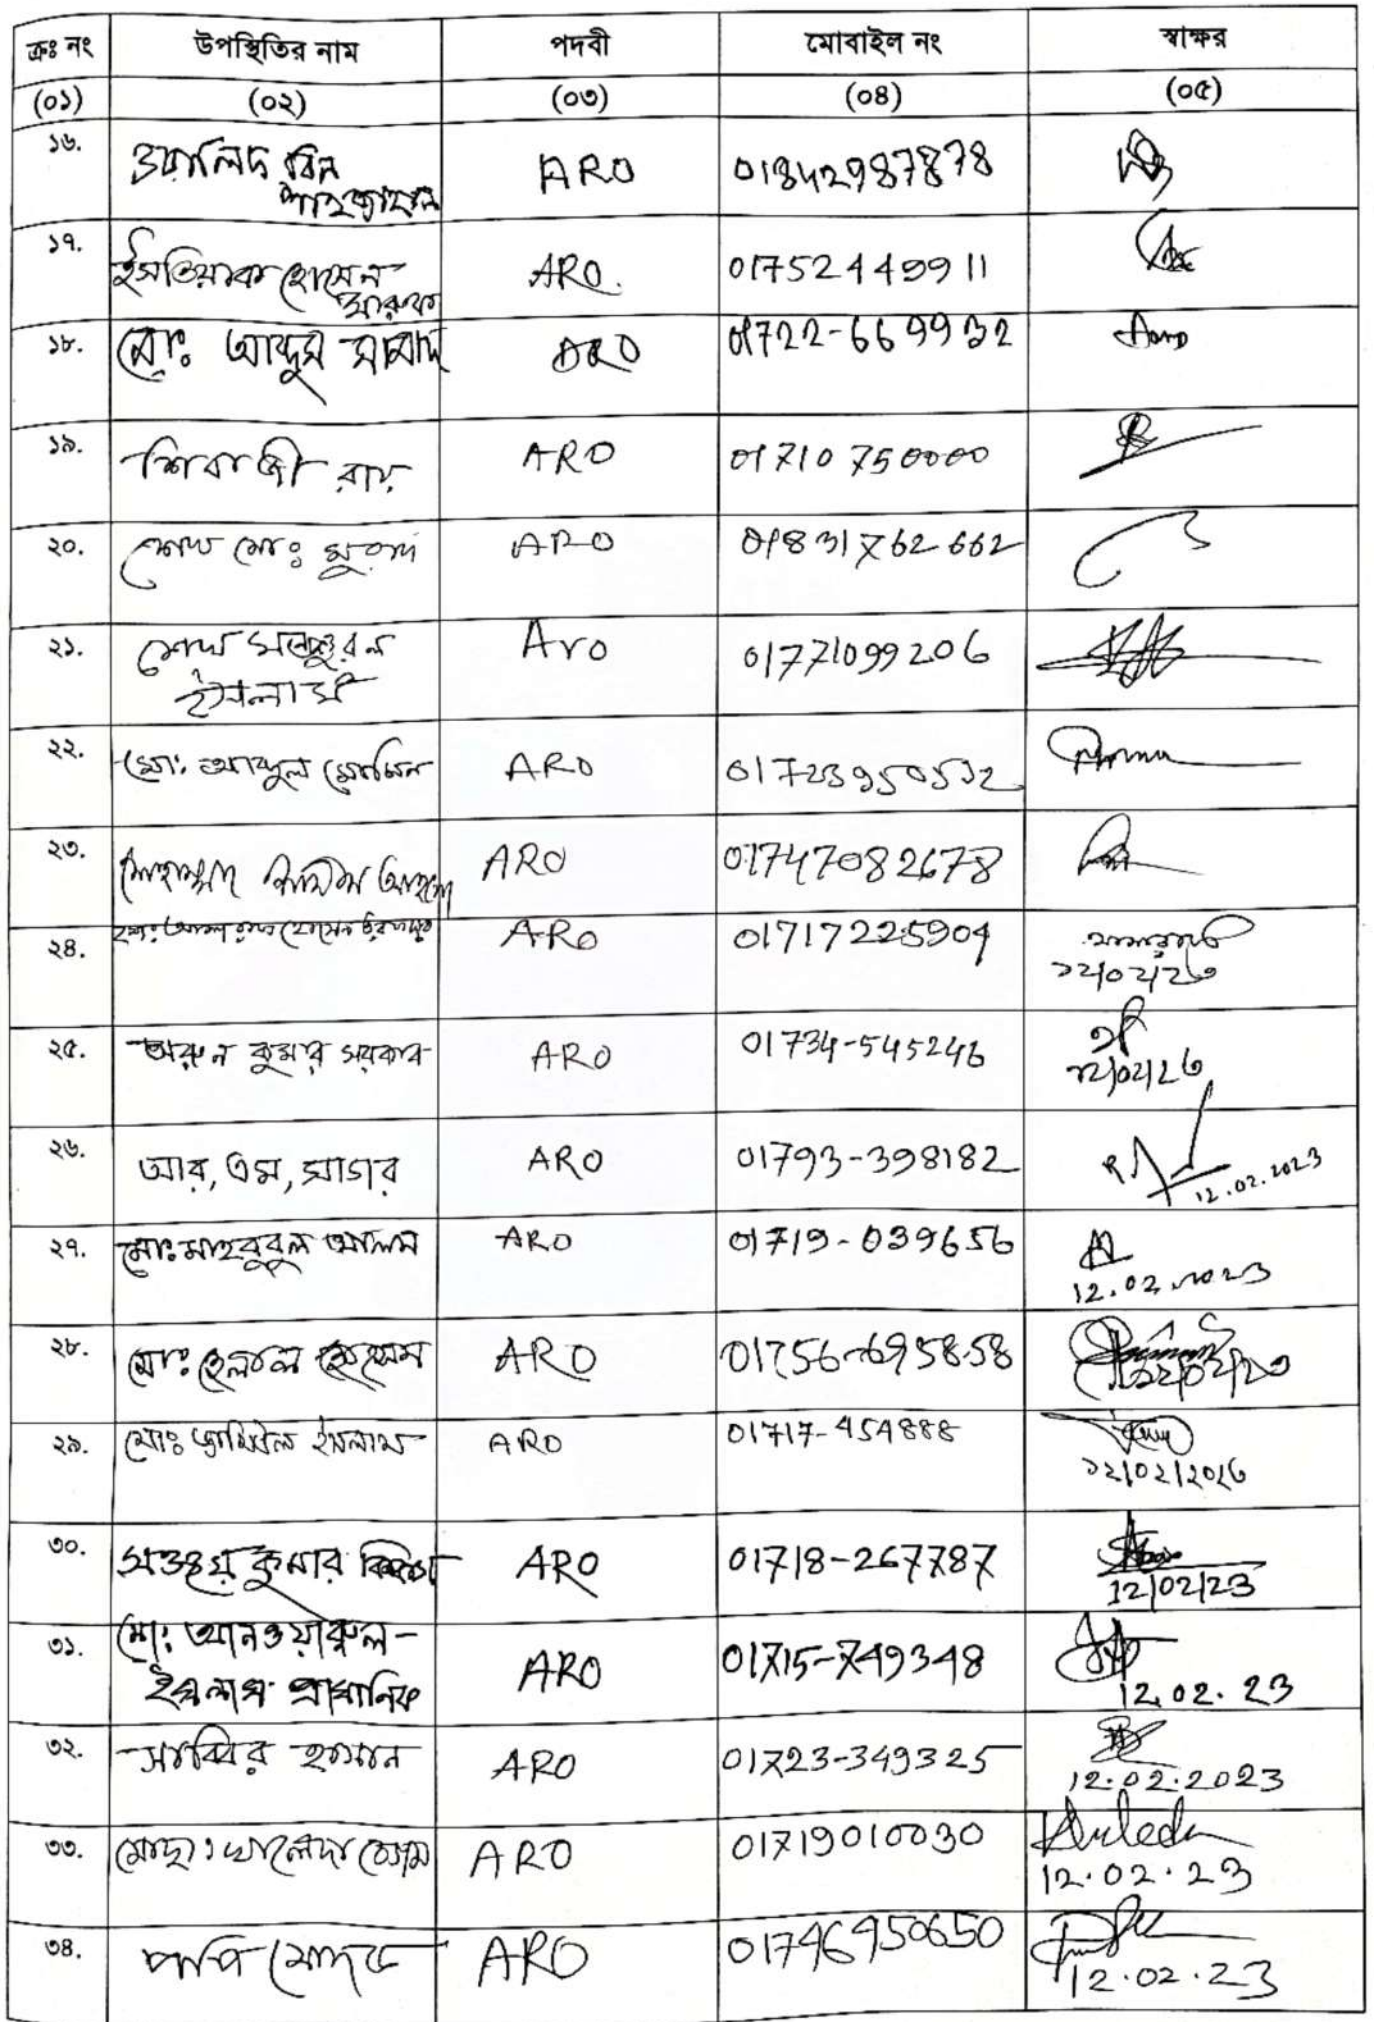 ক্রঃ নং উপস্থিতির নাম পদবী মোবাইল নং স্বাক্ষর
(০১) (০২) (০৩) (০৪) (০৫)
১৬. ওয়ালিদ বিন ARO 01842987878
১৭. ইসতিয়াক হোসেন ARO. 01752449911
১৮. মোঃ আব্দুস সামাদ ARO 01722-669932
১৯. শিবাজী রায় ARO 01710750000
২০. শেখ মোঃ মুরাদ ARO 01831762662
২১. শেখ Aro 01771099206
ইসলাম
২২. মোঃ আব্দুল মোমিন ARO 01723950532
২৩. মোহাম্মদ শামীম আহমেদ ARO 01747082678
২৪. ARO 01717225904
১২/০২/২৩
২৫. অরুন কুমার সরকার ARO 01734-545246
১২/০২/২৩
২৬. আর, এম, সাগর ARO 01793-398182
12.02.2023
২৭. মোঃ মাহবুবুল আলম ARO 01719-039656
12.02.2023
২৮. মোঃ হেলাল ARO 01756-695858
১২/০২/২৩
২৯. মোঃ ইসলাম ARO 01717-454888
১২/০২/২০২৩
৩০. সঞ্জয় কুমার ARO 01718-267787
12/02/23
৩১. মোঃ আনওয়ারুল- ARO 01715-749348
ইসলাম প্রামানিক 12.02.23
৩২. সাব্বির হাসান ARO 01723-349325
12.02.2023
৩৩. মোছাঃ খালেদা বেগম ARO 01719010030
12.02.23
৩৪. পপি ARO 01746950650
12.02.23